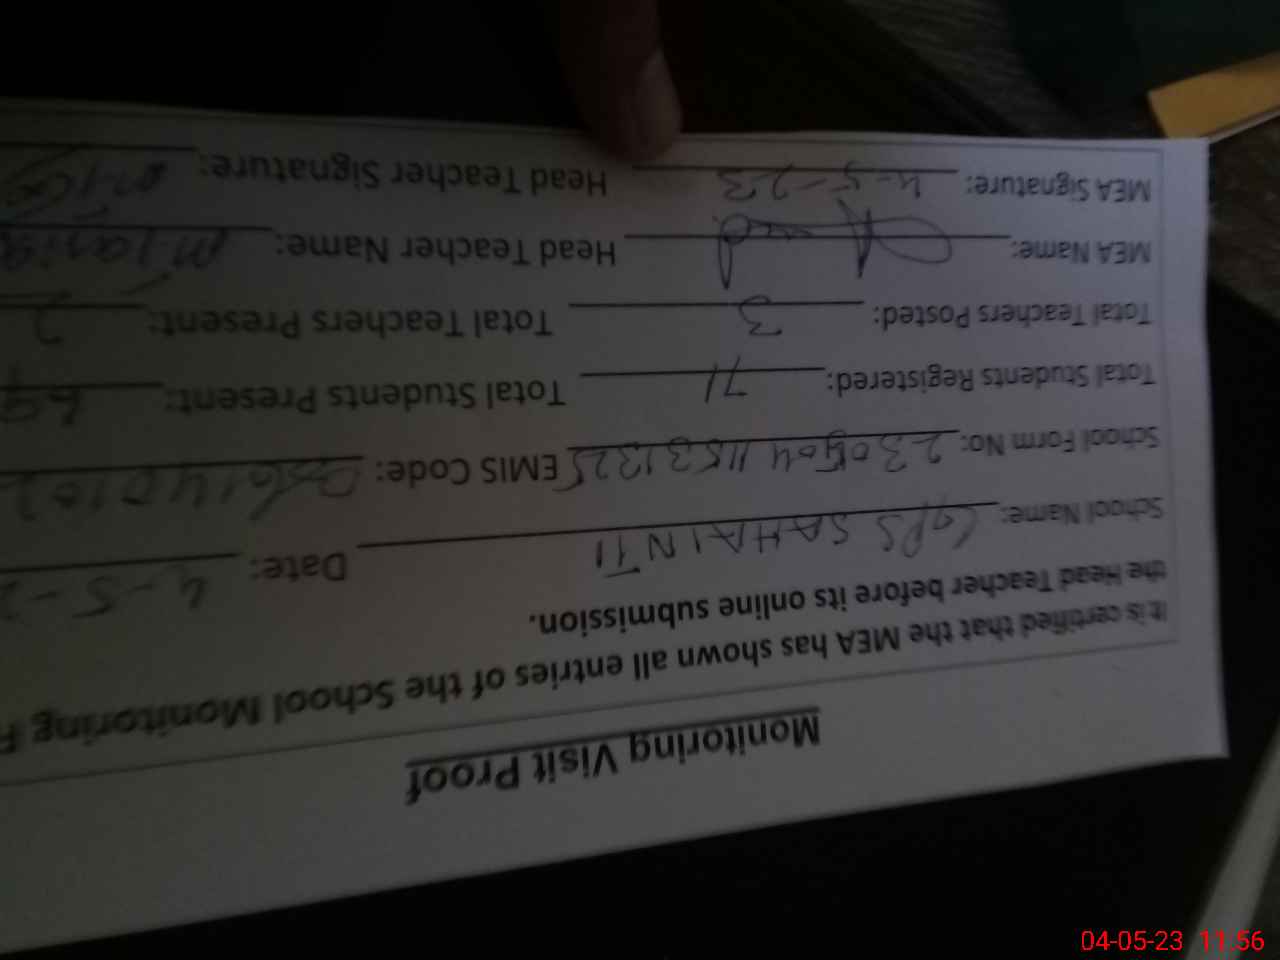 Monitoring Visit Proof
It is certified that the MEA has shown all entries of the School Monitoring F
the Head Teacher before its online submission.
School Name: GPS SAHAINTI Date: 4-5-2
School Form No: EMIS Code:
Total Students Registered: 71 Total Students Present: 69
Total Teachers Posted: 3 Total Teachers Present: 2
MEA Name: Head Teacher Name:
MEA Signature: 4-5-23 Head Teacher Signature:
04-05-23 11:56